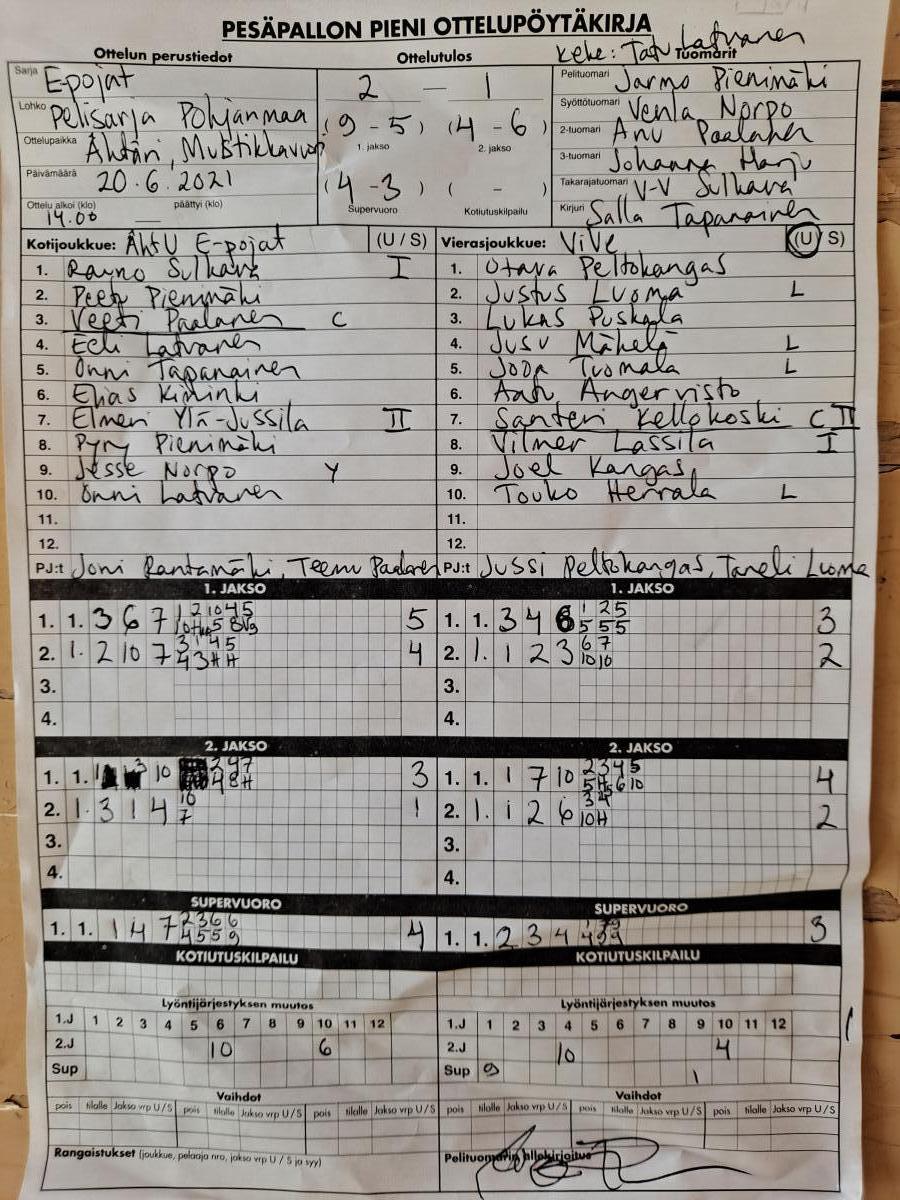 PESÄPALLON PIENI OTTELUPÖYTÄKIRJA
Keke: Tatu Latvanen
Ottelun perustiedot Ottelutulos Tuomarit
Sarja E-pojat 2 — 1 Pelituomari Jarmo Pienimäki
Lohko Pelisarja Pohjanmaa (9 - 5) (4 - 6) Syöttötuomari Venla Norpo
1. jakso 2. jakso 2-tuomari Anu Paalanen
Ottelupaikka Ähtäri, Mustikkavuori 3-tuomari Johanna Harju
Päivämäärä 20.6.2021 (4 - 3) ( - ) Takarajatuomari V-V Sulkava
Ottelu alkoi (klo) 14.00 päättyi (klo) Supervuoro Kotiutuskilpailu Kirjuri Salla Tapanainen
Kotijoukkue: ÄhtU E-pojat (U / S) Vierasjoukkue: ViVe (U / S)
1. Rayno Sulkava I 1. Otava Peltokangas
2. Peetu Pienimäki 2. Justus Luoma L
3. Veeti Paalanen C 3. Lukas Puskala
4. Eeli Latvanen 4. Jusu Mäkelä L
5. Onni Tapanainen 5. Joona Tuomala L
6. Elias Kiminki 6. Aatu Angervisto
7. Elmeri Ylä-Jussila II 7. Santeri Kellokoski C II
8. Pyry Pienimäki 8. Vilmer Lassila I
9. Jesse Norpo Y 9. Joel Kangas
10. Onni Latvanen 10. Touko Herrala L
11. 11.
12. 12.
PJ:t Joni Rantamäki, Teemu Paalanen PJ:t Jussi Peltokangas, Taneli Luoma
1. JAKSO 1. JAKSO
1. 1. 3 6 7 5 1. 1. 3 4 6 1 2 5 3
5 5 5
2. 1. 2 10 7 4 2. 1. 1 2 3 6 7 2
10 10
3. 3.
4. 4.
2. JAKSO 2. JAKSO
1. 1. 10 3 1. 1. 1 7 10 2 3 4 5 4
2. 1. 3 1 4 10 1 2. 1. 1 2 6 3 4 2
7 10 H
3. 3.
4. 4.
SUPERVUORO SUPERVUORO
1. 1. 1 4 7 2 3 6 6 4 1. 1. 2 3 4 3
4 5 5 9
KOTIUTUSKILPAILU KOTIUTUSKILPAILU
Lyöntijärjestyksen muutos Lyöntijärjestyksen muutos
1.J 1 2 3 4 5 6 7 8 9 10 11 12 1.J 1 2 3 4 5 6 7 8 9 10 11 12
2.J 10 6 2.J 10 4
Sup Sup 9 1
Vaihdot Vaihdot
pois tilalle Jakso vrp U / S pois tilalle Jakso vrp U / S pois tilalle Jakso vrp U / S pois tilalle Jakso vrp U / S pois tilalle Jakso vrp U / S pois tilalle Jakso vrp U / S
Rangaistukset (joukkue, pelaaja nro, jakso vrp U / S ja syy) Pelituomarin allekirjoitus